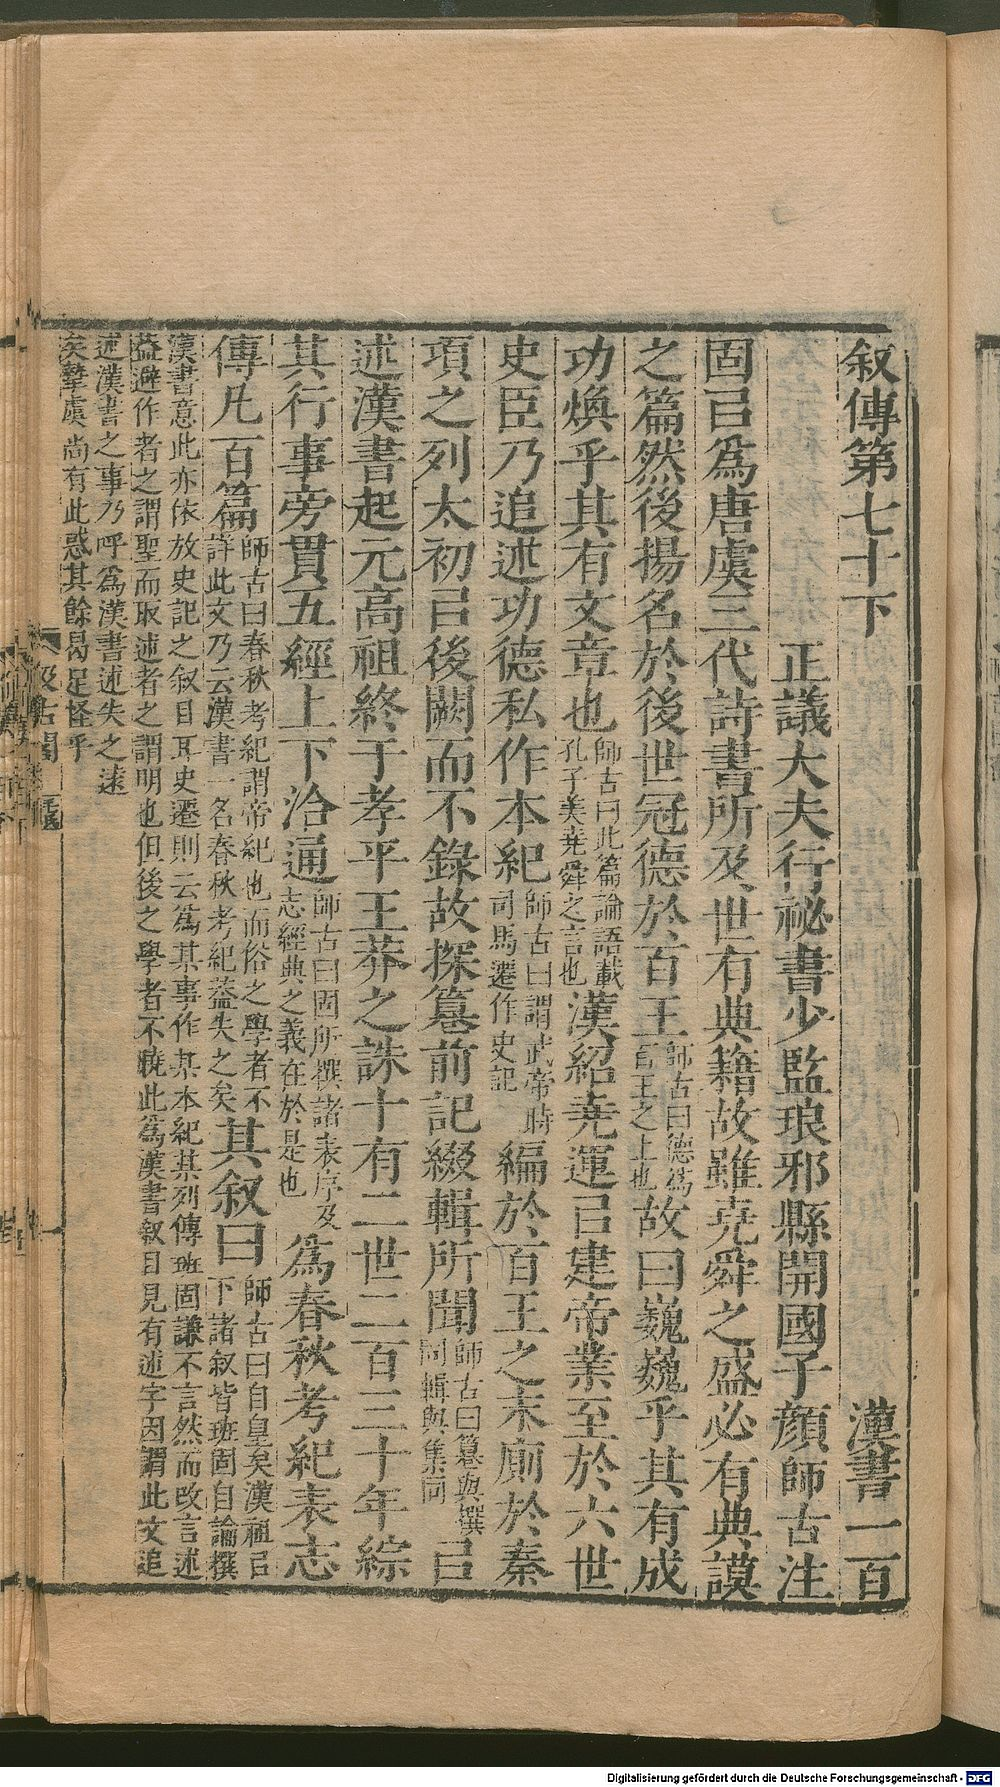 叙傳第七十下　漢書一百
正議大夫行祕書少監琅邪縣開國子顔師古注
固㠯爲唐虞三代詩書所及世有典籍故雖堯舜之盛必有典謨
之篇然後揚名於後世冠德於百王師古曰德爲百王之上也故曰巍巍乎其有成
功煥乎其有文章也師古曰此篇論語載孔子美堯舜之言也漢紹堯運㠯建帝業至於六世
史臣乃追述功德私作本紀師古曰謂武帝時司馬遷作史記編於百王之末廁於秦
項之列太初㠯後闕而不錄故探篹前記綴輯所聞師古曰篹與撰同輯與集同㠯
述漢書起元高祖終于孝平王莽之誅十有二世二百三十年綜
其行事旁貫五經上下洽通師古曰固所撰諸表序及志經典之義在於是也爲春秋考紀表志
傳凡百篇師古曰春秋考紀謂帝紀也而俗之學者不詳此文乃云漢書一名春秋考紀葢失之矣其叙曰師古曰自皇矣漢祖㠯下諸叙皆班固自論撰
漢書意此亦依放史記之叙目耳史遷則云爲某事作某本紀某列傳班固謙不言然而改言述
葢避作者之謂聖而取述者之謂明也但後之學者不曉此爲漢書叙目見有述字因謂此文追
述漢書之事乃呼爲漢書述失之遠
矣摯虞尚有此惑其餘曷足怪乎
汲古閣
Digitalisierung gefördert durch die Deutsche Forschungsgemeinschaft - DFG